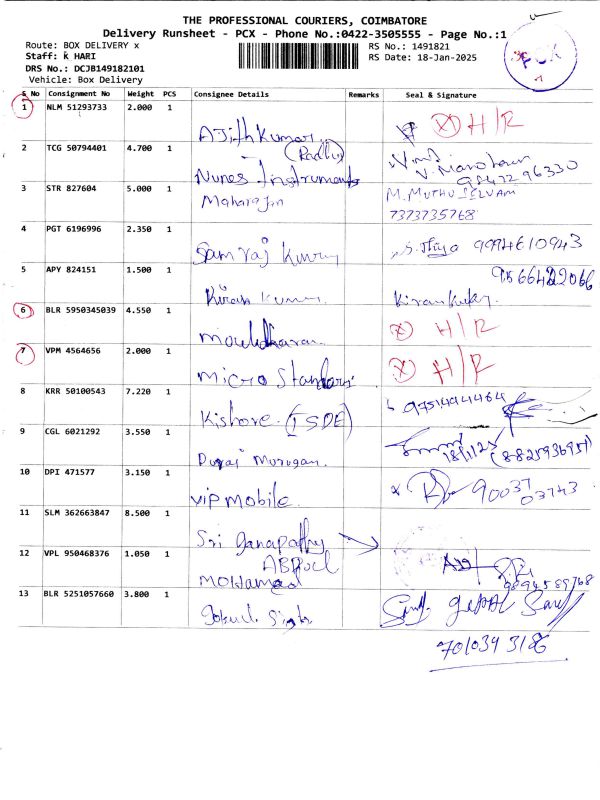 THE PROFESSIONAL COURIERS, COIMBATORE
Delivery Runsheet - PCX - Phone No.:0422-3505555 - Page No.:1
Route: BOX DELIVERY x
RS No.: 1491821
Staff: K HARI
RS Date: 18-Jan-2025
DRS No.: DCJB149182101
Vehicle: Box Delivery
PCX
S No Consignment No Weight PCS Consignee Details Remarks Seal & Signature
1 NLM 51293733 2.000 1 Ajith Kumar H/R
2 TCG 50794401 4.700 1 (Radhu)
Nunes Instruments
V. Manoharan
9847296330
3 STR 827604 5.000 1 Maharaja M. MUTHU SELVAM
7373735768
4 PGT 6196996 2.350 1 Sam raj 9994610943
5 APY 824151 1.500 1 Kiran Kumar 9566422066
6 BLR 5950345039 4.550 1 Moulidharan H/R
7 VPM 4564656 2.000 1 Micro Standard H/R
8 KRR 50100543 7.220 1 Kishore (ISDE) 9751494464
9 CGL 6021292 3.550 1 Durai Murugan 18/1/25
10 DPI 471577 3.150 1 VIP mobile 90037
03743
11 SLM 362663847 8.500 1 Sri Ganapathy
12 VPL 950468376 1.050 1 Mohamed 9894589768
13 BLR 5251057660 3.800 1 Gokul Singh